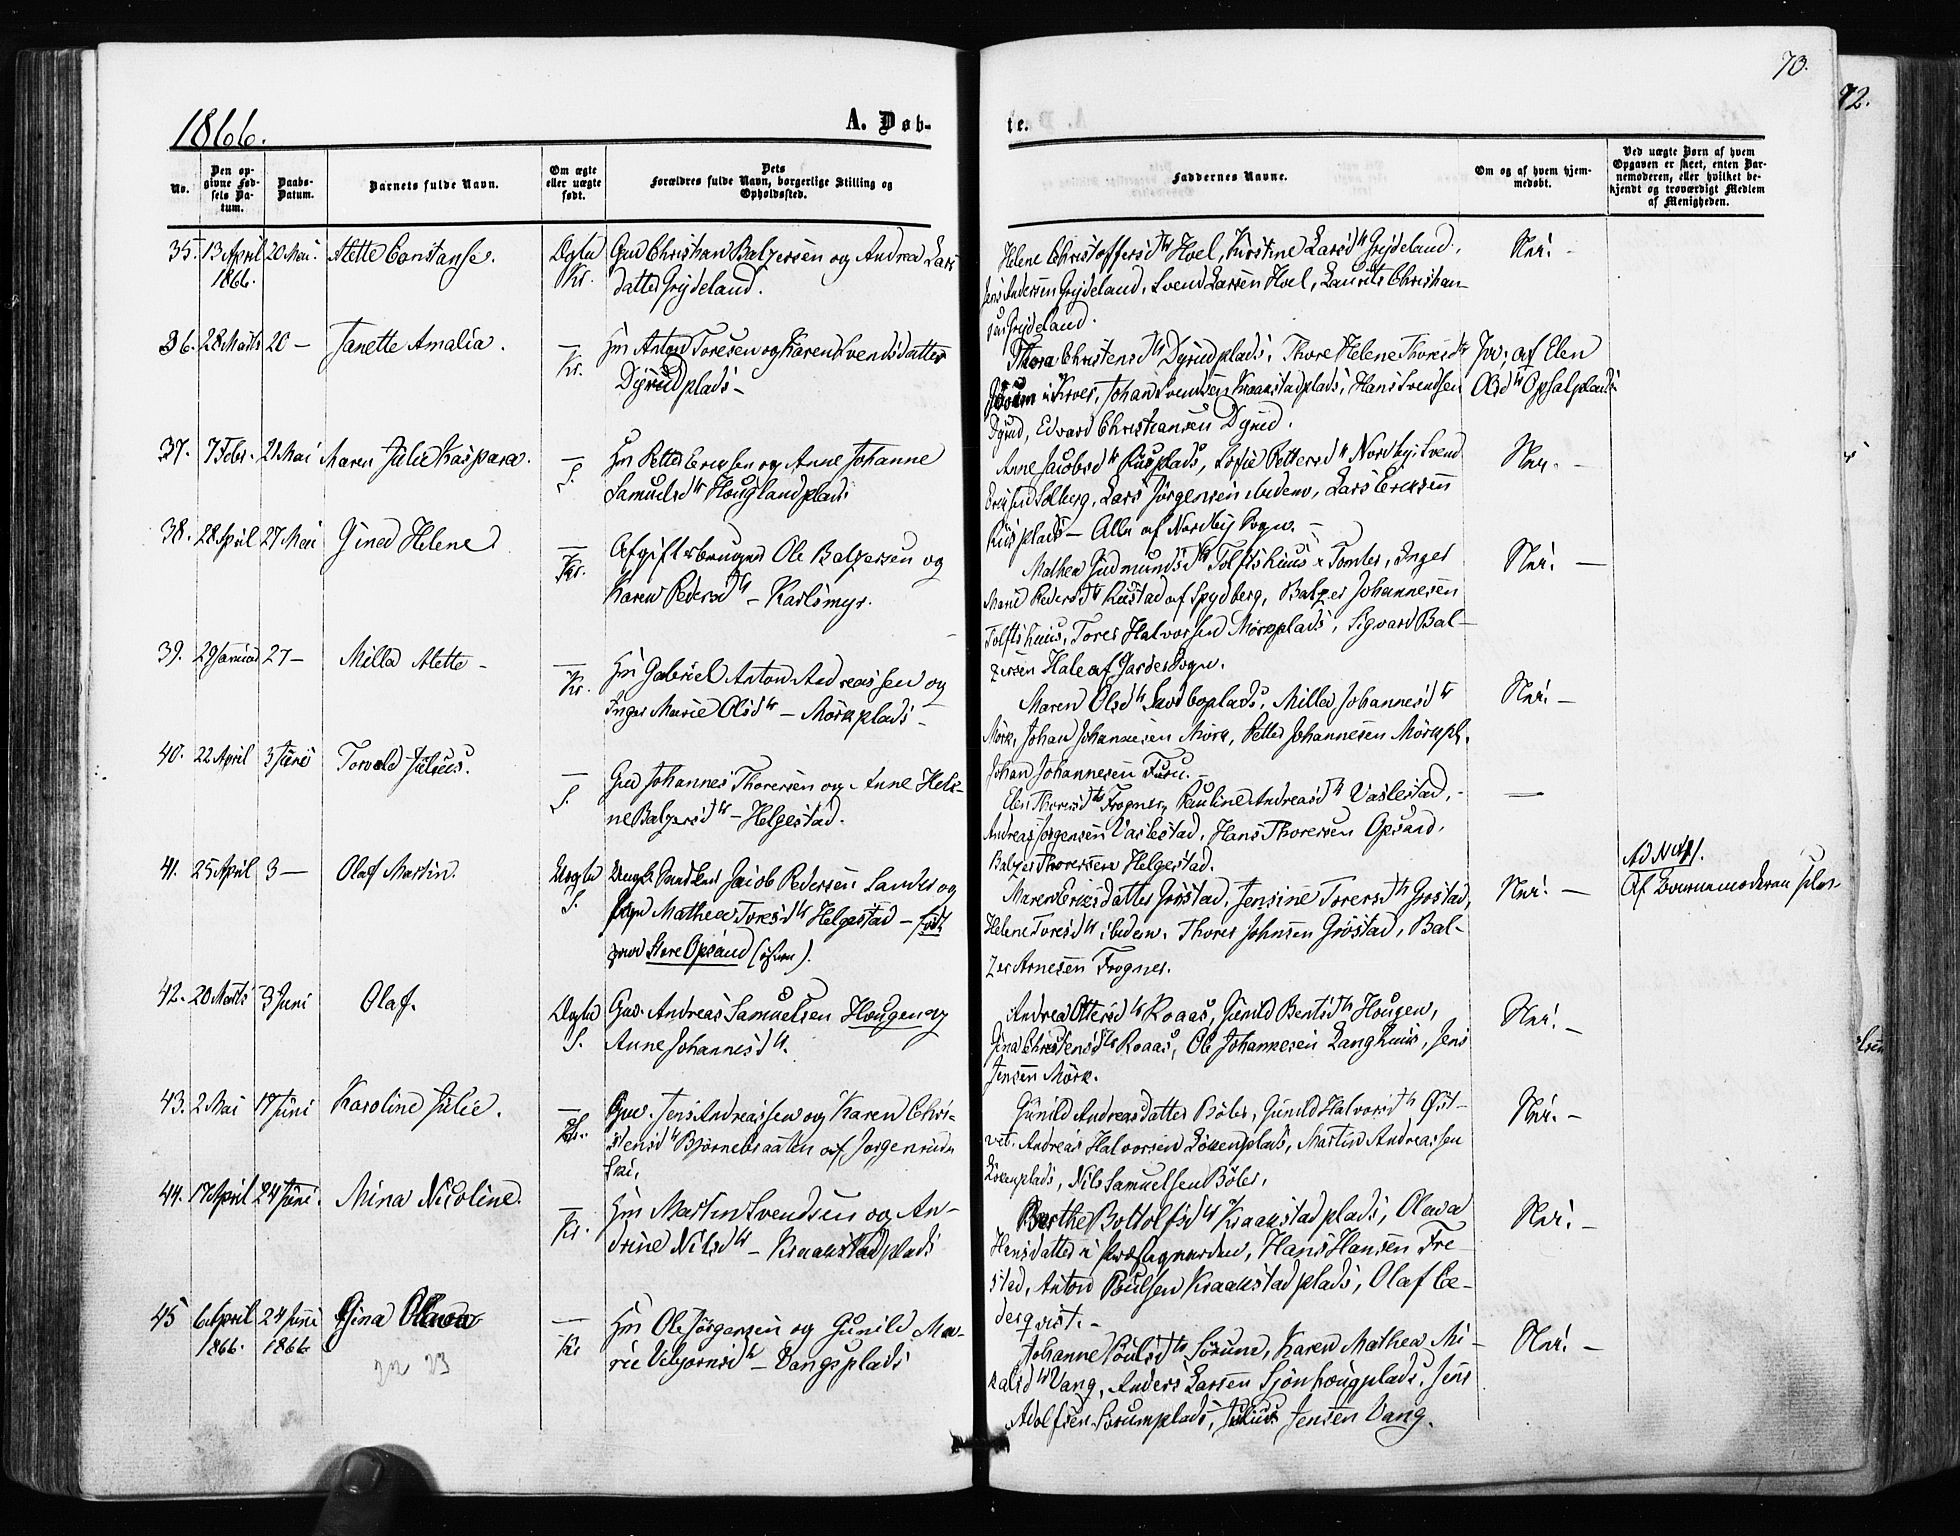 70.
92.
1866.
A. Døb-
te.
No.
Den op-
givne Fød-
sels Da-
tum.
Daabs-
Datum.
Barnets fulde Navn.
Om ægte
eller uægte
født.
Dets
Forældres fulde Navn, borgerlige Stilling og
Opholdssted.
Faddernes Navne.
Om og af hvem hjem-
medøbt.
Ved uægte Børn af hvem
Opgaven er skeet, enten Bar-
nemoderen, eller hvilket be-
kjendt og troværdigt Medlem
af Menigheden.
35. 13 April 20 Mai. Alette Constanse. Ægte Christian Balzersen og Andrea Lars
1866. Kr. datter Grydeland.
Helene Christoffersd Hoel, Kirstine Larsd Grydeland,
Jens Andersen Grydeland, Svend Larsen Hoel, Laurits Christian-
sen Grydeland.
36. 28 Marts 20 — Janette Amalia. — Hm Anton Toresen og Karen Svendsdatter
Kr. Dyrudplads —
Thora Christensd Dyrudplads, Thore Helene Thoresd
Johan Svendsen Kraakstadplads, Hans Svendsen
Dyrud, Edvard Christiansen Dyrud.
af Elen
Olsd Opsalplads
37. 7 Febr. 21 Mai Maren Julie Kaspara. — Hm Petter Ericksen og Anne Johanne
S. Samuelsd Houglandplads
Anne Jacobsd Ruisplads, Sofie Pettersd Nordby, Svend
Ericksen Solberg, Lars Jørgensen ibidem, Lars Ericksen
Ruisplads — Alle af Nordby Sogn. —
38. 28 April 27 Mai Gined Helene — Afgiftsbruger Ole Balzersen og
Kr. Karen Pedersd — Karlsmyr.
Mathea Gudmundsd Tolfshuus Tomter, Inger
Marie Pedersd Rustad af Spydberg, Balzer Johannesen
Tolfshuus, Tores Halvorsen Mørkplads, Sigvard Bal-
zersen Hale af Garder Sogn.
39. 29 Januar 27 — Milla Alette — — Hm Gabriel Anton Andreassen og
Kr. Inger Marie Olsd — Mørkplads —
Maren Olsd Sandboplads, Milla Johannesd
Mørk, Johan Johannesen Mørk, Petter Johannesen Mørkpl.
Johan Johannesen Furu.
40. 22 April 3 Juni Torvald Julius. — Johannes Thoresen og Anne Hele-
S. ne Balzersd — Helgestad.
Elen Thoresd Frogner, Pauline Andreasd Vaslestad,
Andreas Jørgensen Vaslestad, Hans Thoresen Opsand,
Balzer Thoresen Helgestad.
—
41. 25 April 3 — Olaf Martin. Uægte Jacob Pedersen Sander og
S. Mathea Toresd Helgestad —
Store Opsand
Maren Ericksdatter Grøstad, Jensine Toresd Grøstad,
Helene Toresd ibidem, Thores Johnsen Grøstad, Bal-
zer Arnesen Frogner.
Af Barnemoderen
42. 20 Marts 3 Juni Olaf. Ægte Andreas Samuelsen Hougen og
S. Anne Johannesd.
Andrea Ottersd Roaas, Gunild Bentsd Hougen,
Gina Christensd Roaas, Ole Johannesen Langhuus, Jens
Jensen Mørk.
43. 2 Mai 17 Juni Karoline Julie. — Jens Andreassen og Karen Chri-
Kr. stensd Bjørnebraaten af Jørgenrud
Ski.
Gunild Andreasdatter Bøler, Gunild Halvorsd Øst-
vet, Andreas Halvorsen Løkenplads, Martin Andreassen
Løkenplads, Nils Samuelsen Bøler.
44. 17 April 24 Juni. Mina Nicoline. — Hm Martin Svendsen og An-
Kr. drine Nilsd — Kraakstadplads
Berthe Botolfsd Kraakstadplads, Olava
Hansdatter Præstegaarden, Hans Hansen Fre-
stad, Anton Poulsen Kraakstadplads, Olaf Ce-
derqvist. —
45 6 April 24 Juni Gina Olava — Hm Ole Jørgensen og Gunild Ma-
1866. 1866 Kr rie Vebjørnsd — Vangsplads
22 23
Johanne Poulsd Sørum, Karen Mathea Mi-
kalsd Vang, Anders Larsen Sjønhougplads, Jens
Adolfsen Sørumplads, Julius Jensen Vang.